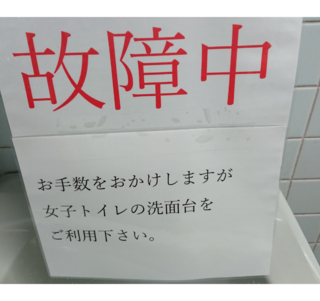 故障中
お手数をおかけしますが
女子トイレの洗面台を
ご利用下さい。